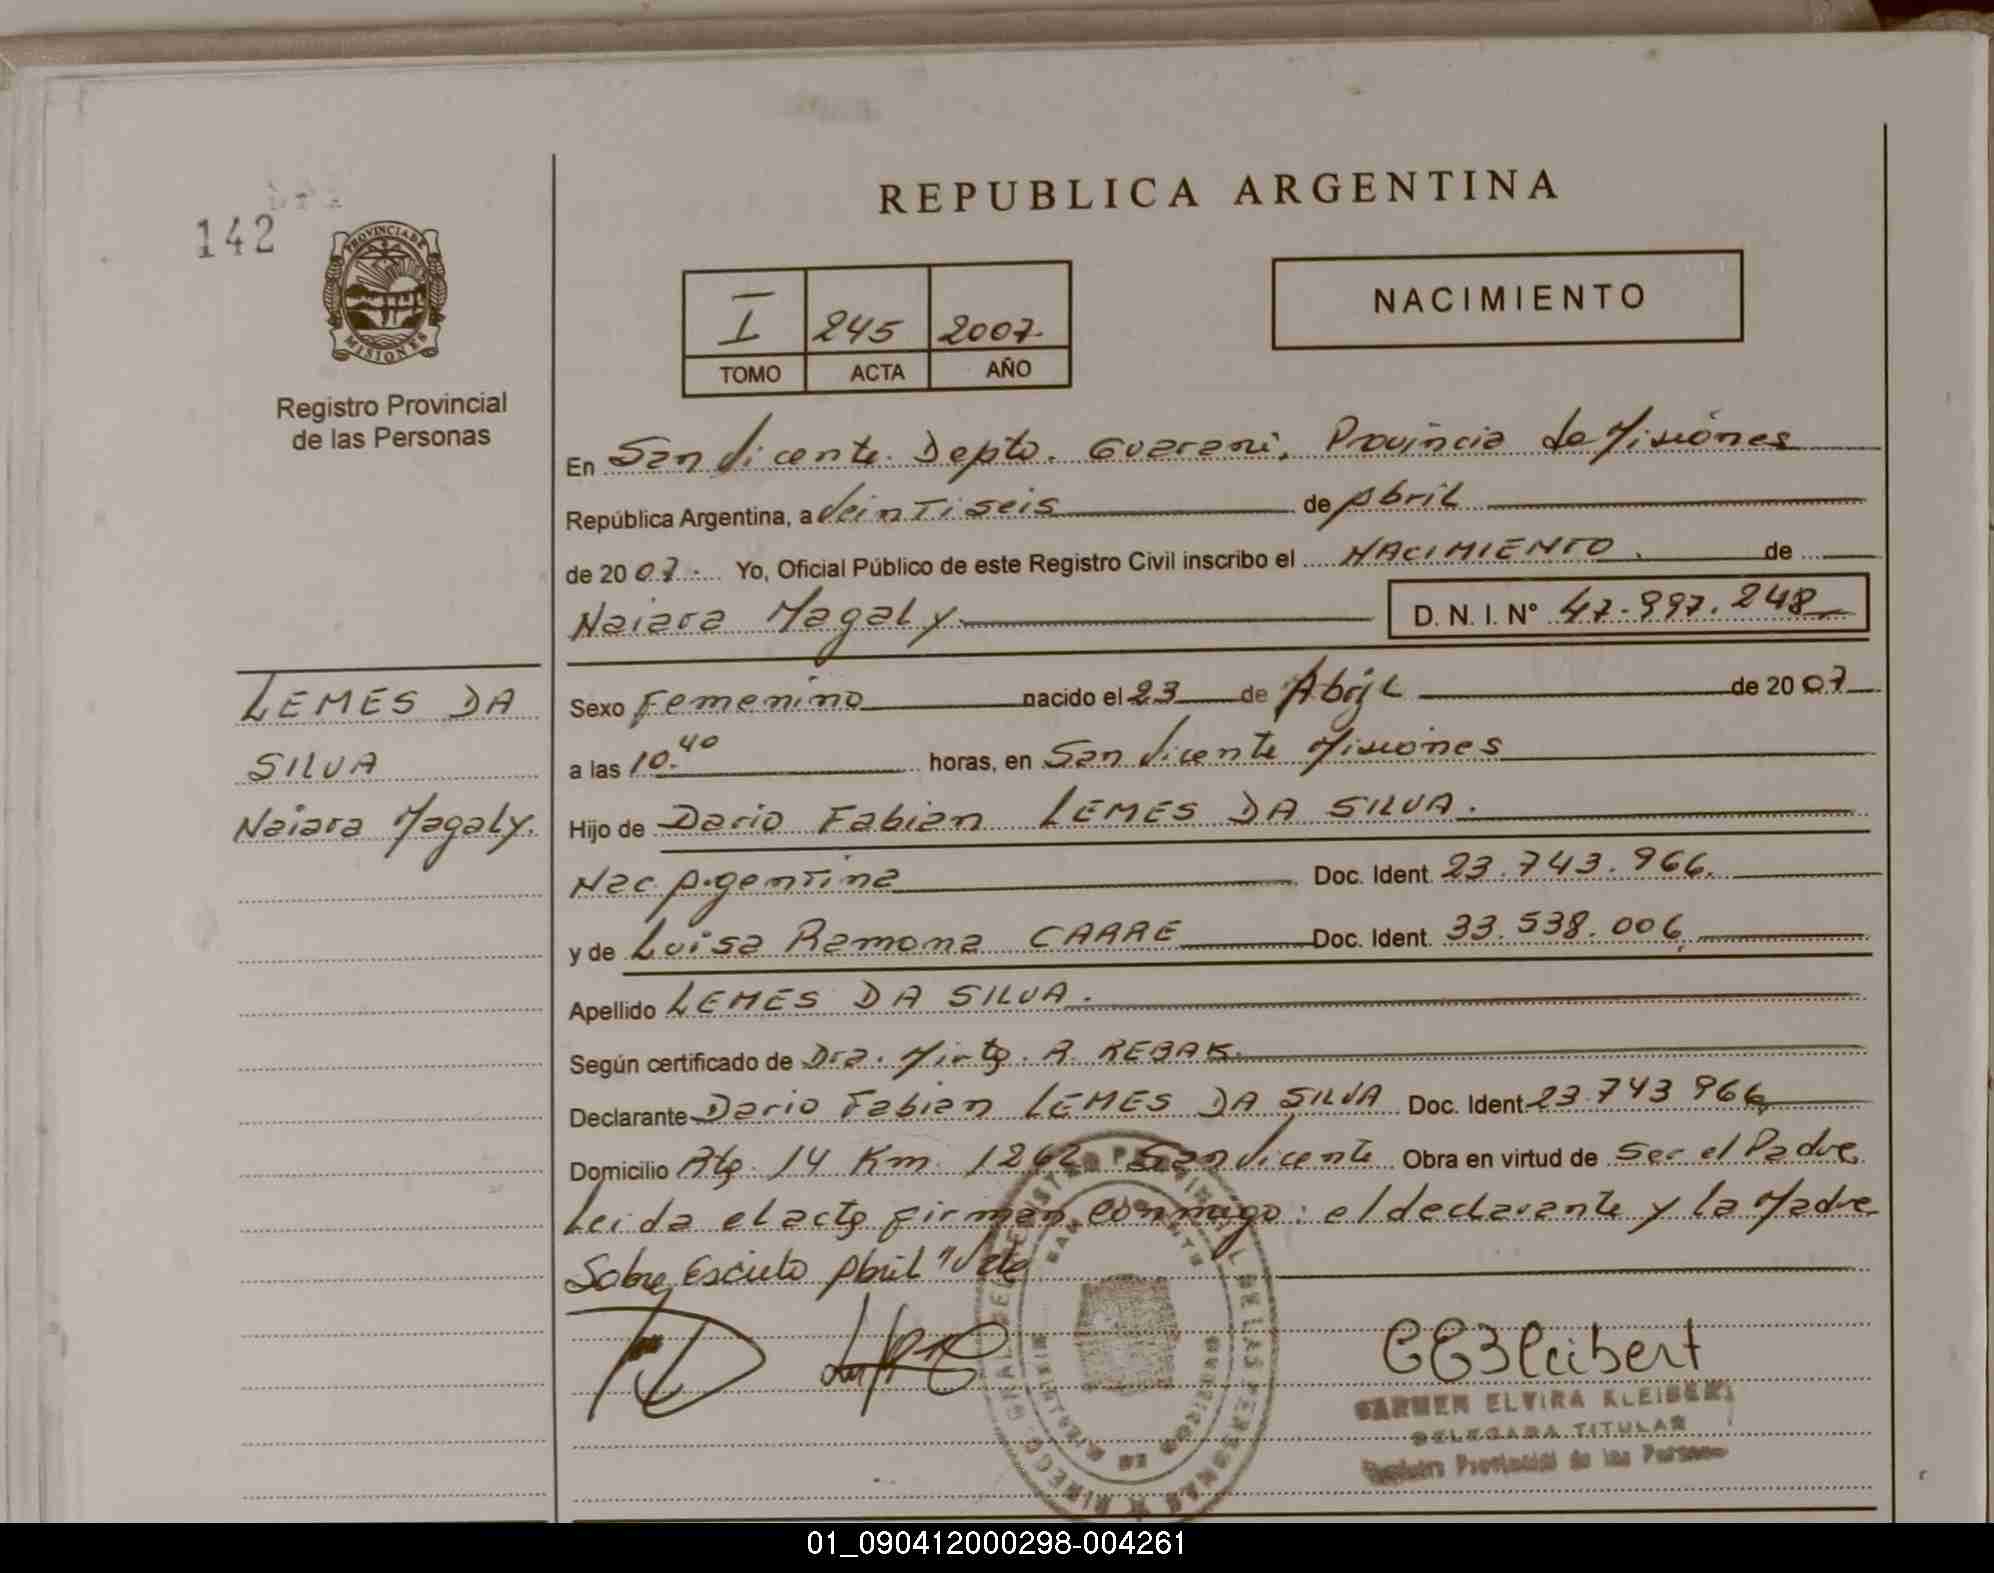 142
PROVINCIA DE
MISIONES
Registro Provincial
de las Personas
REPUBLICA ARGENTINA
I 245 2007
TOMO ACTA AÑO
NACIMIENTO
En San Vicente Depto. Guarani, Provincia de Misiones
República Argentina, a Veintiseis de Abril
de 2007. Yo, Oficial Público de este Registro Civil inscribo el NACIMIENTO. de
Naiara Magaly D. N. I. N° 47.997.248
LEMES DA
SILVA
Naiara Magaly.
Sexo Femenino nacido el 23 de Abril de 2007
a las 10.40 horas, en San Vicente Misiones
Hijo de Dario Fabian LEMES DA SILVA.
Nac. Argentina Doc. Ident. 23.743.966.
y de Luisa Ramona CARRE Doc. Ident. 33.538.006.
Apellido LEMES DA SILVA.
Según certificado de Dra. Mirta. R REBAK.
Declarante Dario Fabian LEMES DA SILVA Doc. Ident. 23.743 966
Domicilio Rta. 14 Km. 1262 San Vicente Obra en virtud de Ser el Padre
Leida el acta firman conmigo: el declarante y la Madre
Sobre Escrito Abril "Vale
CEKleibert
CARMEN ELVIRA KLEIBERT
DELEGADA TITULAR
Registro Provincial de las Personas
01_090412000298-004261